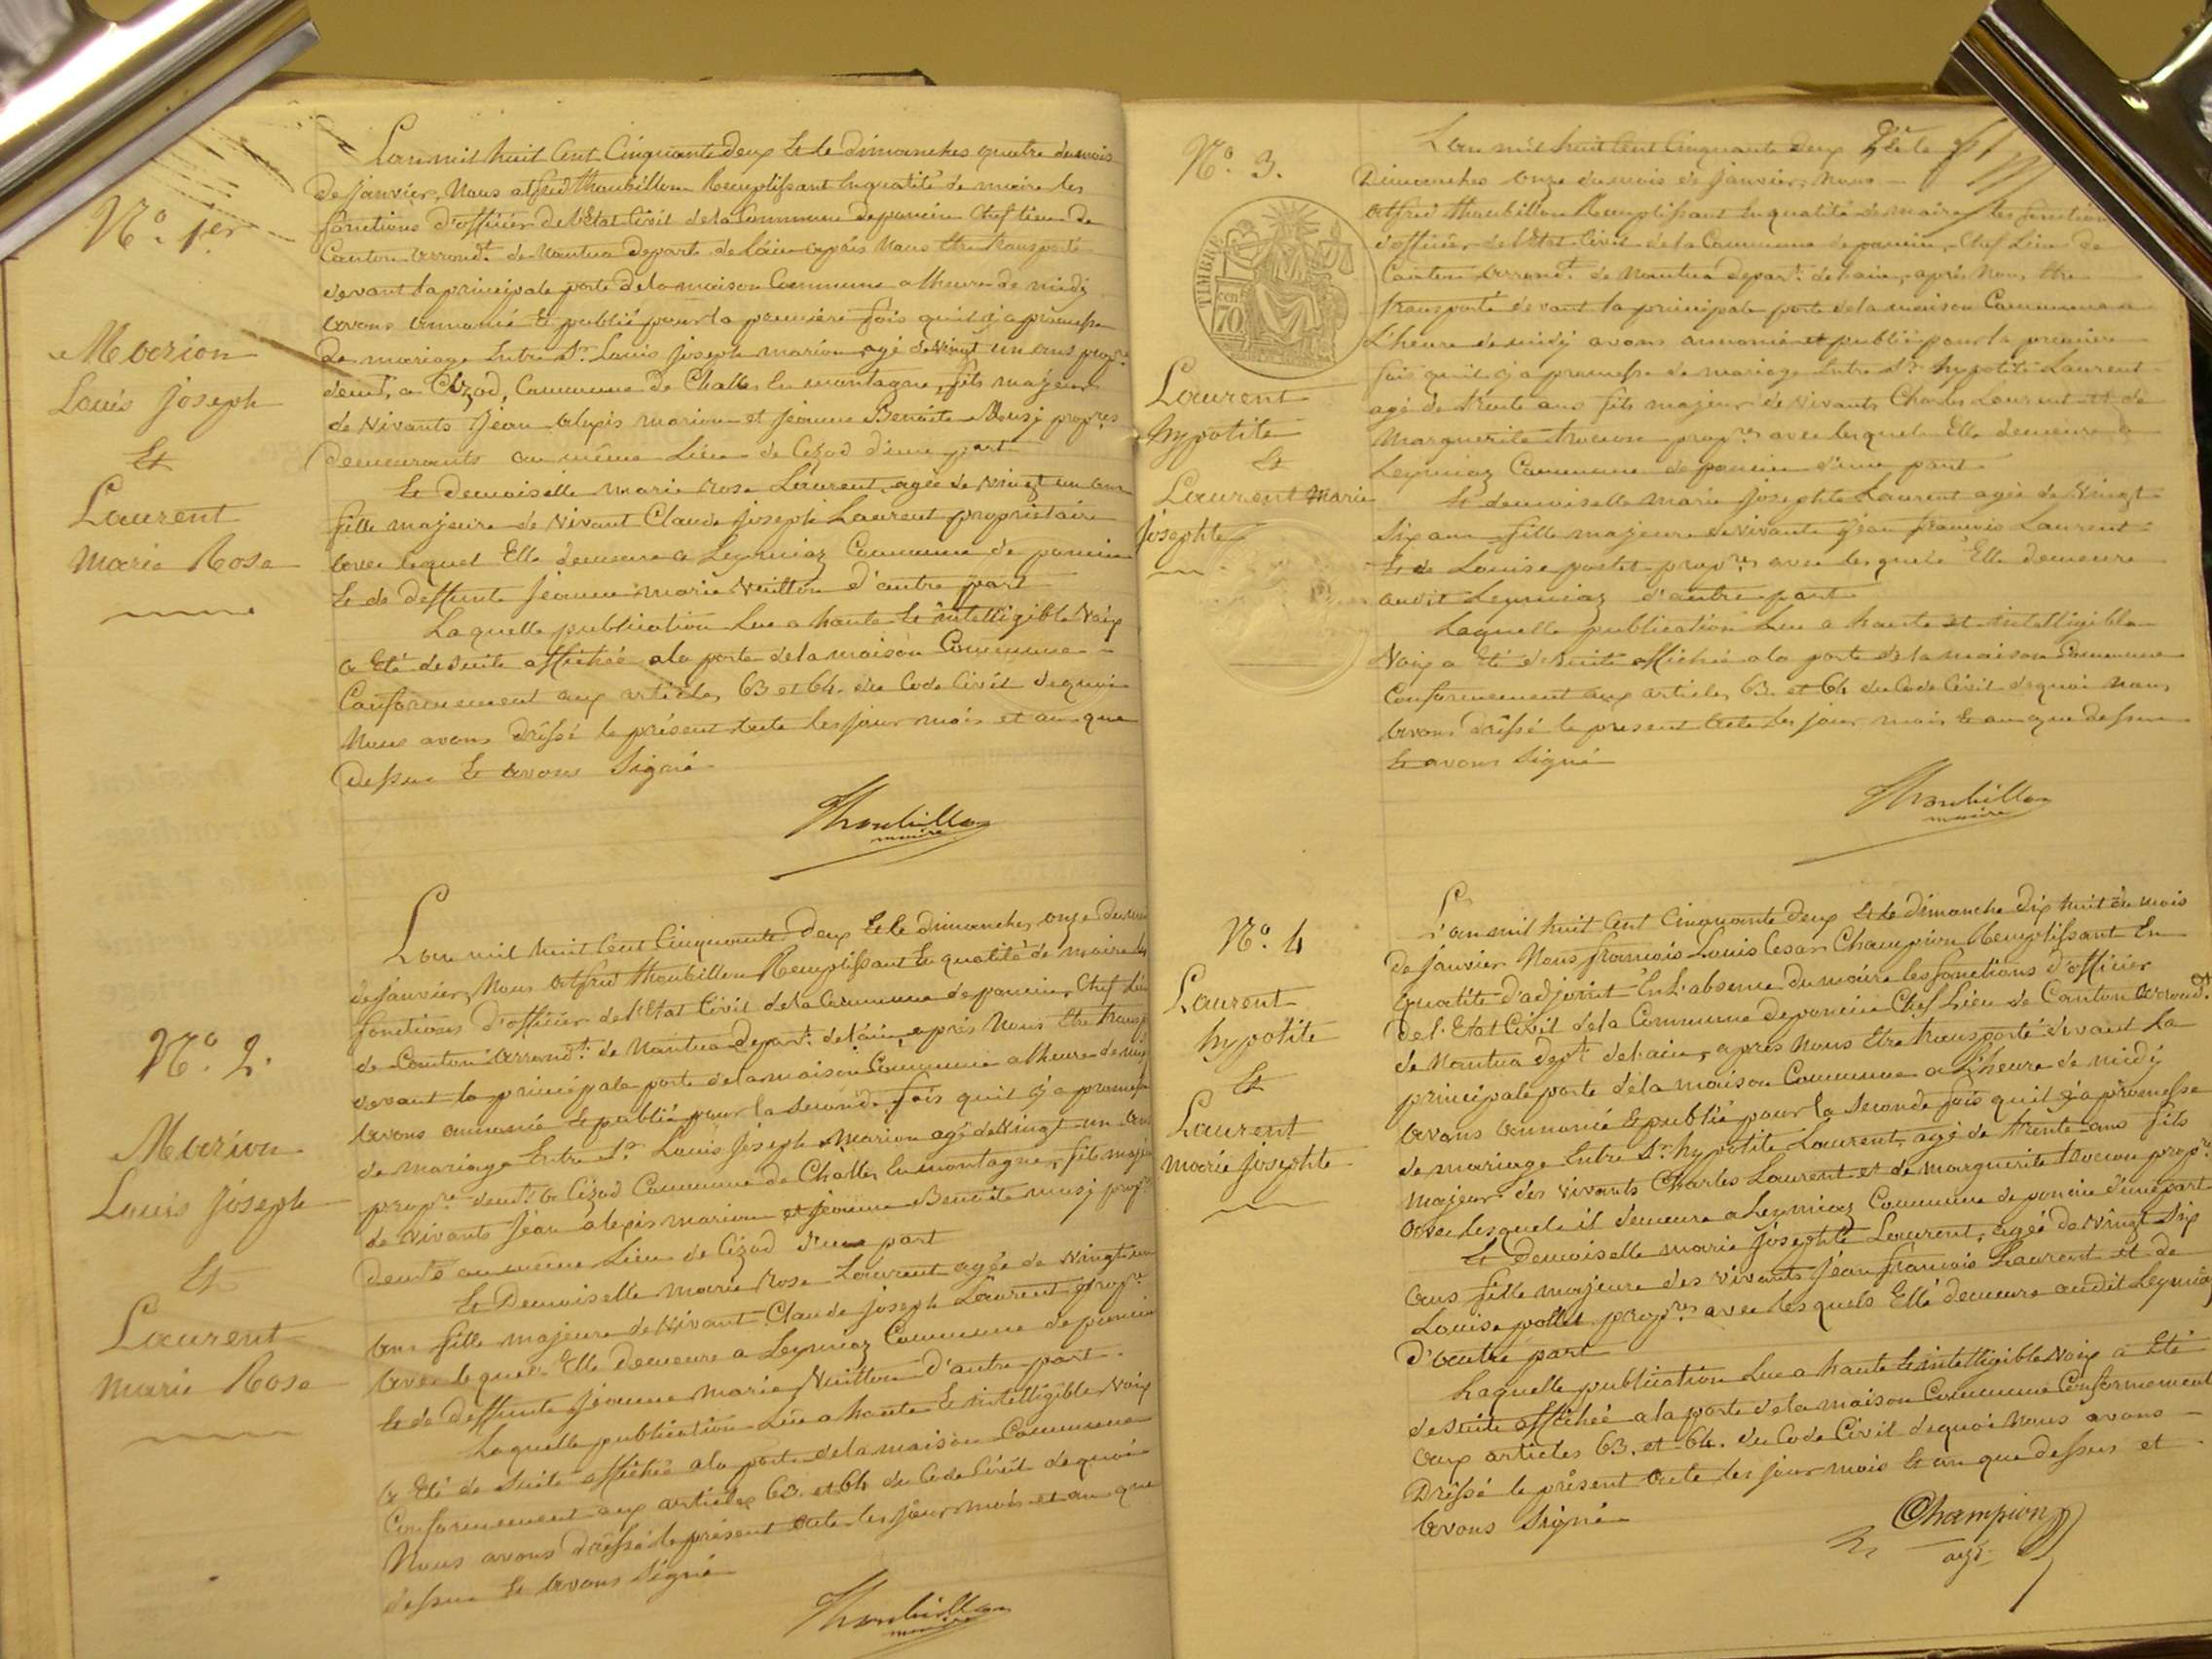 N.o 1.er
Marion
Louis Joseph
Et
Laurent
Marie Rose
L'an mil huit Cent Cinquante deux Et le dimanches quatre du mois
de janvier, Nous alfred Thoubillon Remplissant En qualité de maire les
fonctions d'officier de l'Etat Civil de la Commune de poncin Chef lieu de
Canton Arrond.t de Nantua Depart. de l'ain après Nous Etre transporté
devant la principale porte de la maison Commune a l'heure de midy
Avons annoncé Et publié pour la première fois qu'il y a promesse
de mariage Entre S.r Louis Joseph marion agé de Vingt un ans prop.re
demt. a Cizod, Commune de Challes la montagne, fils majeur
de Vivants Jean Alexis Marion et Jeanne Benoite Musy prop.res
demeurants au même Lieu de Cizod d'une part
Et demoiselle marie Rose Laurent, agée de Vingt un ans
fille majeure de Vivant Claude Joseph Laurent propriétaire
Avec lequel Elle demeure a Leymiaz Commune de poncin
Et de deffunte Jeanne Marie Vuitton d'autre part
Laquelle publication Lue a haute Et intelligible Voix
a Eté de suite affichée a la porte de la maison Commune
Conformement aux articles 63 et 64. du Code Civil de quoi
Nous avons dréssé le présent acte les jour mois et an que
dessus Et Avons Signé
Thoubillon
maire
N.o 2.
Marion
Louis Joseph
Et
Laurent
Marie Rose
L'an mil huit Cent Cinquante Deux Et le dimanches onze du mois
de janvier, Nous Alfred Thoubillon Remplissant En qualité de maire les
fonctions d'officier de l'Etat Civil de la Commune de poncin, Chef Lieu
de Canton Arrond.t de Nantua Depart. de l'ain, après Nous Etre transp
devant la principale porte de la maison Commune a l'heure de midy
Avons annoncé Et publié pour la seconde fois qu'il y a promesse
de mariage Entre S.r Louis Joseph Marion agé de Vingt un ans
prop.re demt. a Cizod Commune de Challes la montagne, fils majeur
de Vivants Jean alexis marion et Jeanne Benoite musy prop.res
demts au même Lieu de Cizod d'une part
Et Demoiselle marie Rose Laurent agée de Vingt un
Ans fille majeure de Vivant Claude Joseph Laurent prop.re
Avec lequel Elle demeure a Leymiaz Commune de poncin
Et de deffunte Jeanne Marie Vuitton d'autre part.
Laquelle publication Lue a haute Et intelligible Voix
a Eté de suite affichée a la porte de la maison Commune
Conformement aux articles 63. et 64 du Code Civil de quoi
Nous avons dréssé le présent acte les jour mois et an que
dessus Et Avons Signé
Thoubillon
maire
N.o 3.
TIMBRE
70 cen
Laurent
hypolite
Et
Laurent Marie
Joséphte
L'an mil huit Cent Cinquante deux Et le
Dimanches Onze du mois de Janvier, Nous
Alfred Thoubillon Remplissant En qualité de maire les fonctions
d'officier de l'Etat Civil de la Commune de poncin, Chef Lieu de
Canton Arrond.t de Nantua depart. de l'ain, après Nous Etre
transporté devant la principale porte de la maison Commune a
L'heure de midy avons annoncé et publié pour la première
fois qu'il y a promesse de mariage Entre S.r hypolite Laurent
agé de trente ans fils majeur de Vivants Charles Laurent et de
Marguerite trocon prop.res avec lesquels Elle demeure a
Leymiaz Commune de poncin d'une part
Et demoiselle Marie Josephte Laurent agée de Vingt
Six ans fille majeure de Vivants Jean francois Laurent
Et de Louise pollet prop.res avec lesquels Elle demeure
audit Leymiaz d'autre part
Laquelle publication Lue a haute et intelligible
Voix a Eté de suite affichée a la porte de la maison Commune
Conformement aux articles 63. et 64 du Code Civil de quoi Nous
Avons dréssé le présent acte les jour mois Et an que dessus
Et avons Signé
Thoubillon
maire
N.o 4
Laurent
hypolite
Et
Laurent
Marie Josephte
L'an mil huit Cent Cinquante deux Et le dimanche dix huit du mois
de Janvier Nous francois Louis Cesar Champion Remplissant En
qualité d'adjoint En L'absence du maire les fonctions d'officier
de l'Etat Civil de la Commune de poncin Chef Lieu de Canton Arrondt.
de Nantua dept. de l'ain, après Nous Etre transporté devant La
principale porte de la maison Commune a L'heure de midy
Avons annoncé Et publié pour la Seconde fois qu'il y a promesse
de mariage Entre S.r hypolite Laurent, agé de trente ans fils
Majeur des Vivants Charles Laurent et de marguerite trocon prop.res
avec lesquels il demeure a Leymiaz Commune de poncin d'une part
Et Demoiselle Marie Joséphte Laurent, agée de Vingt Six
Ans fille majeure des Vivants Jean francois Laurent et de
Louise pollet prop.res avec lesquels Elle demeure audit Leymiaz
d'autre part
Laquelle publication Lue a haute Et intelligible Voix a Eté
de suite affichée a la porte de la maison Commune Conformement
aux articles 63. et 64. du Code Civil de quoi Nous avons
Dréssé le présent acte les jour mois Et an que dessus et
Avons Signé
Champion
adjt